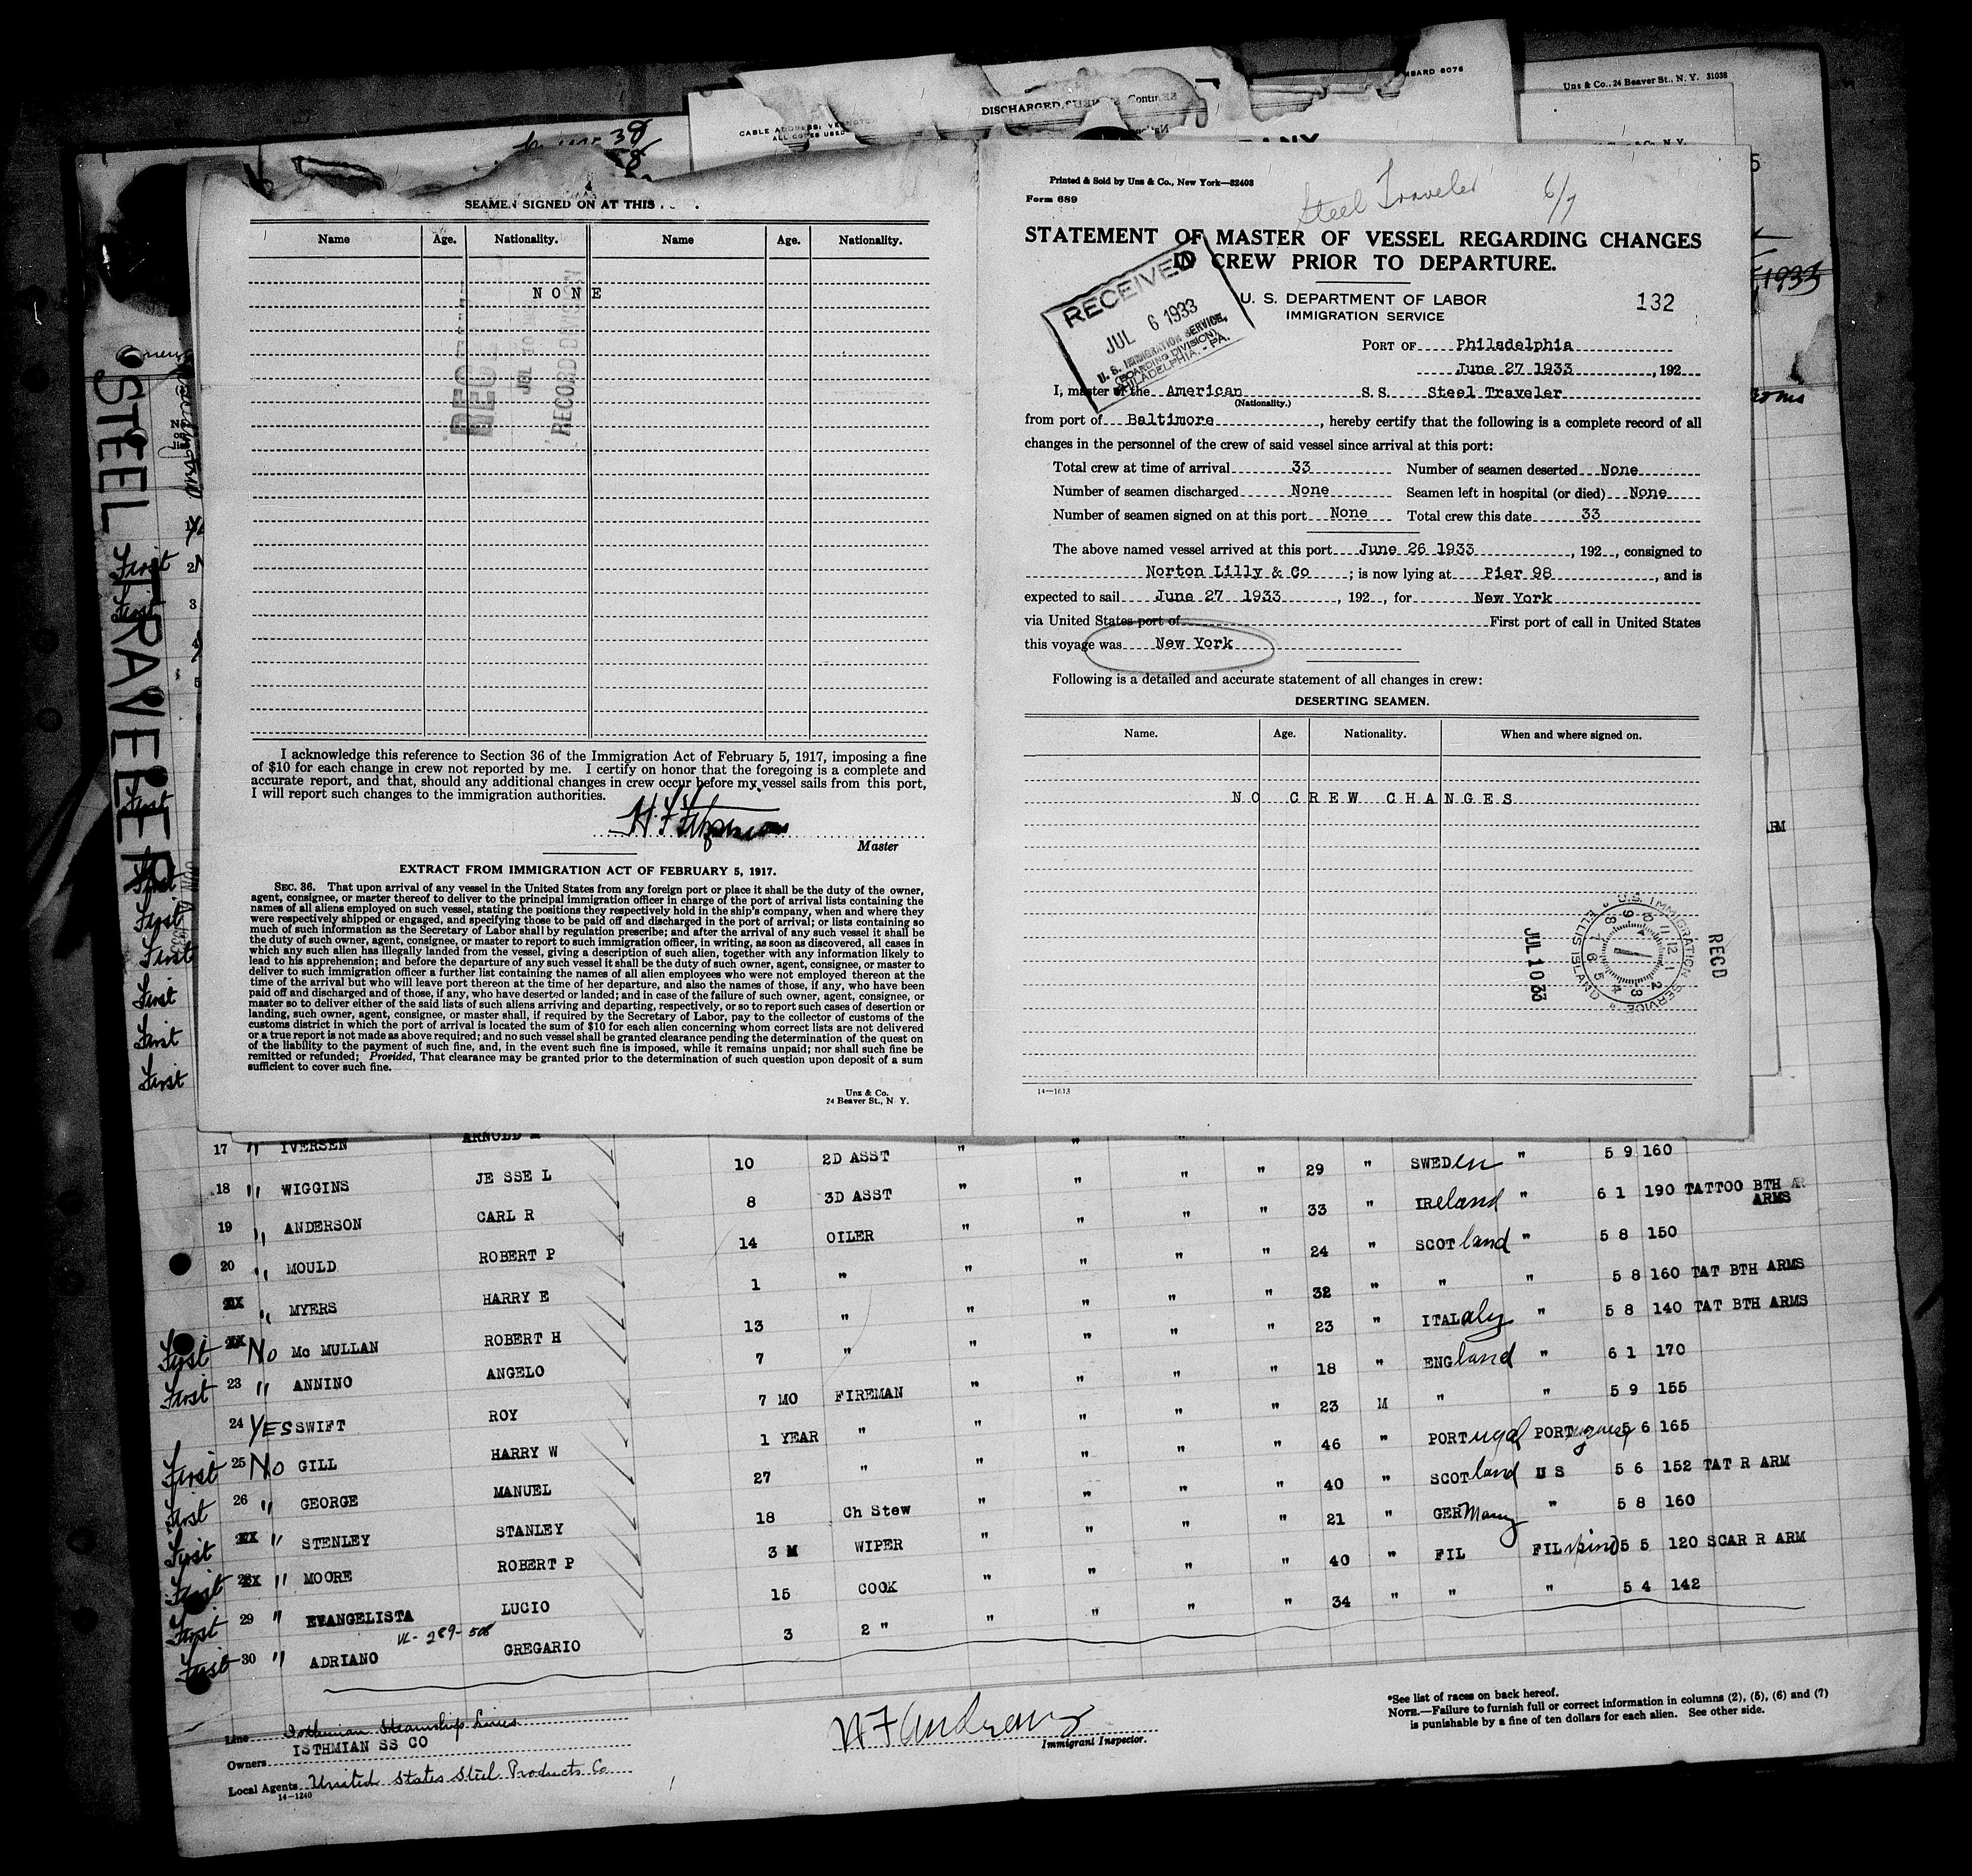 Uns & Co., 24 Beaver St., N. Y. 31038
DISCHARGED
CABLE ADDRESS:
SEAMEN SIGNED ON AT THIS
Name Age. Nationality. Name Age. Nationality.
NONE
JUL 10
RECORD DIVISION
I acknowledge this reference to Section 36 of the Immigration Act of February 5, 1917, imposing a fine
of $10 for each change in crew not reported by me. I certify on honor that the foregoing is a complete and
accurate report, and that, should any additional changes in crew occur before my vessel sails from this port,
I will report such changes to the immigration authorities.
Master
EXTRACT FROM IMMIGRATION ACT OF FEBRUARY 5, 1917.
SEC. 36. That upon arrival of any vessel in the United States from any foreign port or place it shall be the duty of the owner,
agent, consignee, or master thereof to deliver to the principal immigration officer in charge of the port of arrival lists containing the
names of all aliens employed on such vessel, stating the positions they respectively hold in the ship's company, when and where they
were respectively shipped or engaged, and specifying those to be paid off and discharged in the port of arrival; or lists containing so
much of such information as the Secretary of Labor shall by regulation prescribe; and after the arrival of any such vessel it shall be
the duty of such owner, agent, consignee, or master to report to such immigration officer, in writing, as soon as discovered, all cases in
which any such alien has illegally landed from the vessel, giving a description of such alien, together with any information likely to
lead to his apprehension; and before the departure of any such vessel it shall be the duty of such owner, agent, consignee, or master to
deliver to such immigration officer a further list containing the names of all alien employees who were not employed thereon at the
time of the arrival but who will leave port thereon at the time of her departure, and also the names of those, if any, who have been
paid off and discharged and of those, if any, who have deserted or landed; and in case of the failure of such owner, agent, consignee, or
master so to deliver either of the said lists of such aliens arriving and departing, respectively, or so to report such cases of desertion or
landing, such owner, agent, consignee, or master shall, if required by the Secretary of Labor, pay to the collector of customs of the
customs district in which the port of arrival is located the sum of $10 for each alien concerning whom correct lists are not delivered
or a true report is not made as above required; and no such vessel shall be granted clearance pending the determination of the quest on
of the liability to the payment of such fine, and, in the event such fine is imposed, while it remains unpaid; nor shall such fine be
remitted or refunded; Provided, That clearance may be granted prior to the determination of such question upon deposit of a sum
sufficient to cover such fine.
Unz & Co.
24 Beaver St., N Y.
Printed & Sold by Unz & Co., New York—32403
Form 689
Steel Traveler 6/7
STATEMENT OF MASTER OF VESSEL REGARDING CHANGES
IN CREW PRIOR TO DEPARTURE.
RECEIVED
JUL 6 1933
U. S. IMMIGRATION SERVICE,
(BOARDING DIVISION)
PHILADELPHIA, - PA.
U. S. DEPARTMENT OF LABOR
IMMIGRATION SERVICE
132
PORT OF Philadelphia
June 27 1933, 192
I, master of the American S. S. Steel Traveler
(Nationality.)
from port of Baltimore, hereby certify that the following is a complete record of all
changes in the personnel of the crew of said vessel since arrival at this port:
Total crew at time of arrival 33 Number of seamen deserted None
Number of seamen discharged None Seamen left in hospital (or died) None
Number of seamen signed on at this port None Total crew this date 33
The above named vessel arrived at this port June 26 1933, 192, consigned to
Norton Lilly & Co; is now lying at Pier 98, and is
expected to sail June 27 1933, 192, for New York
via United States port of First port of call in United States
this voyage was New York
Following is a detailed and accurate statement of all changes in crew:
DESERTING SEAMEN.
Name. Age. Nationality. When and where signed on.
NO CREW CHANGES
U.S. IMMIGRATION SERVICE ELLIS ISLAND
JUL 10 33
RECD
14—1613
STEEL TRAVELER
First
First
First
First
First
First
First
First
First
17 " IVERSEN ARNOLD 10 2D ASST " " " " 29 " SWEDen " 5 9 160
18 " WIGGINS JESSE L 8 3D ASST " " " " 33 " IReland " 6 1 190 TATTOO BTH ARMS
19 " ANDERSON CARL R 14 OILER " " " " 24 " SCOTland " 5 8 150
20 " MOULD ROBERT P 1 " " " " " 32 " " " 5 8 160 TAT BTH ARMS
" MYERS HARRY E 13 " " " " " 23 " ITALaly " 5 8 140 TAT BTH ARMS
First No Mc MULLAN ROBERT H 7 " " " " " 18 " ENGland " 6 1 170
First 23 " ANNINO ANGELO 7 MO FIREMAN " " " " 23 M " " 5 9 155
24 YES SWIFT ROY 1 YEAR " " " " " 46 " PORTugal PORTuguese 5 6 165
First 25 No GILL HARRY W 27 " " " " " 40 " SCOTland U S 5 6 152 TAT R ARM
First 26 " GEORGE MANUEL 18 Ch Stew " " " " 21 " GERMany " 5 8 160
First " STENLEY STANLEY 3 M WIPER " " " " 40 " FIL FILipino 5 5 120 SCAR R ARM
First 28 " MOORE ROBERT P 15 COOK " " " " 34 " " " 5 4 142
First 29 " EVANGELISTA LUCIO 3 2 " "
First 30 " ADRIANO GREGARIO
VL-289-508
Line Isthmian Steamship Lines
Owners ISTHMIAN SS CO
Local Agents United States Steel Products Co
14—1240
Immigrant Inspector.
*See list of races on back hereof.
NOTE.—Failure to furnish full or correct information in columns (2), (5), (6) and (7)
is punishable by a fine of ten dollars for each alien. See other side.